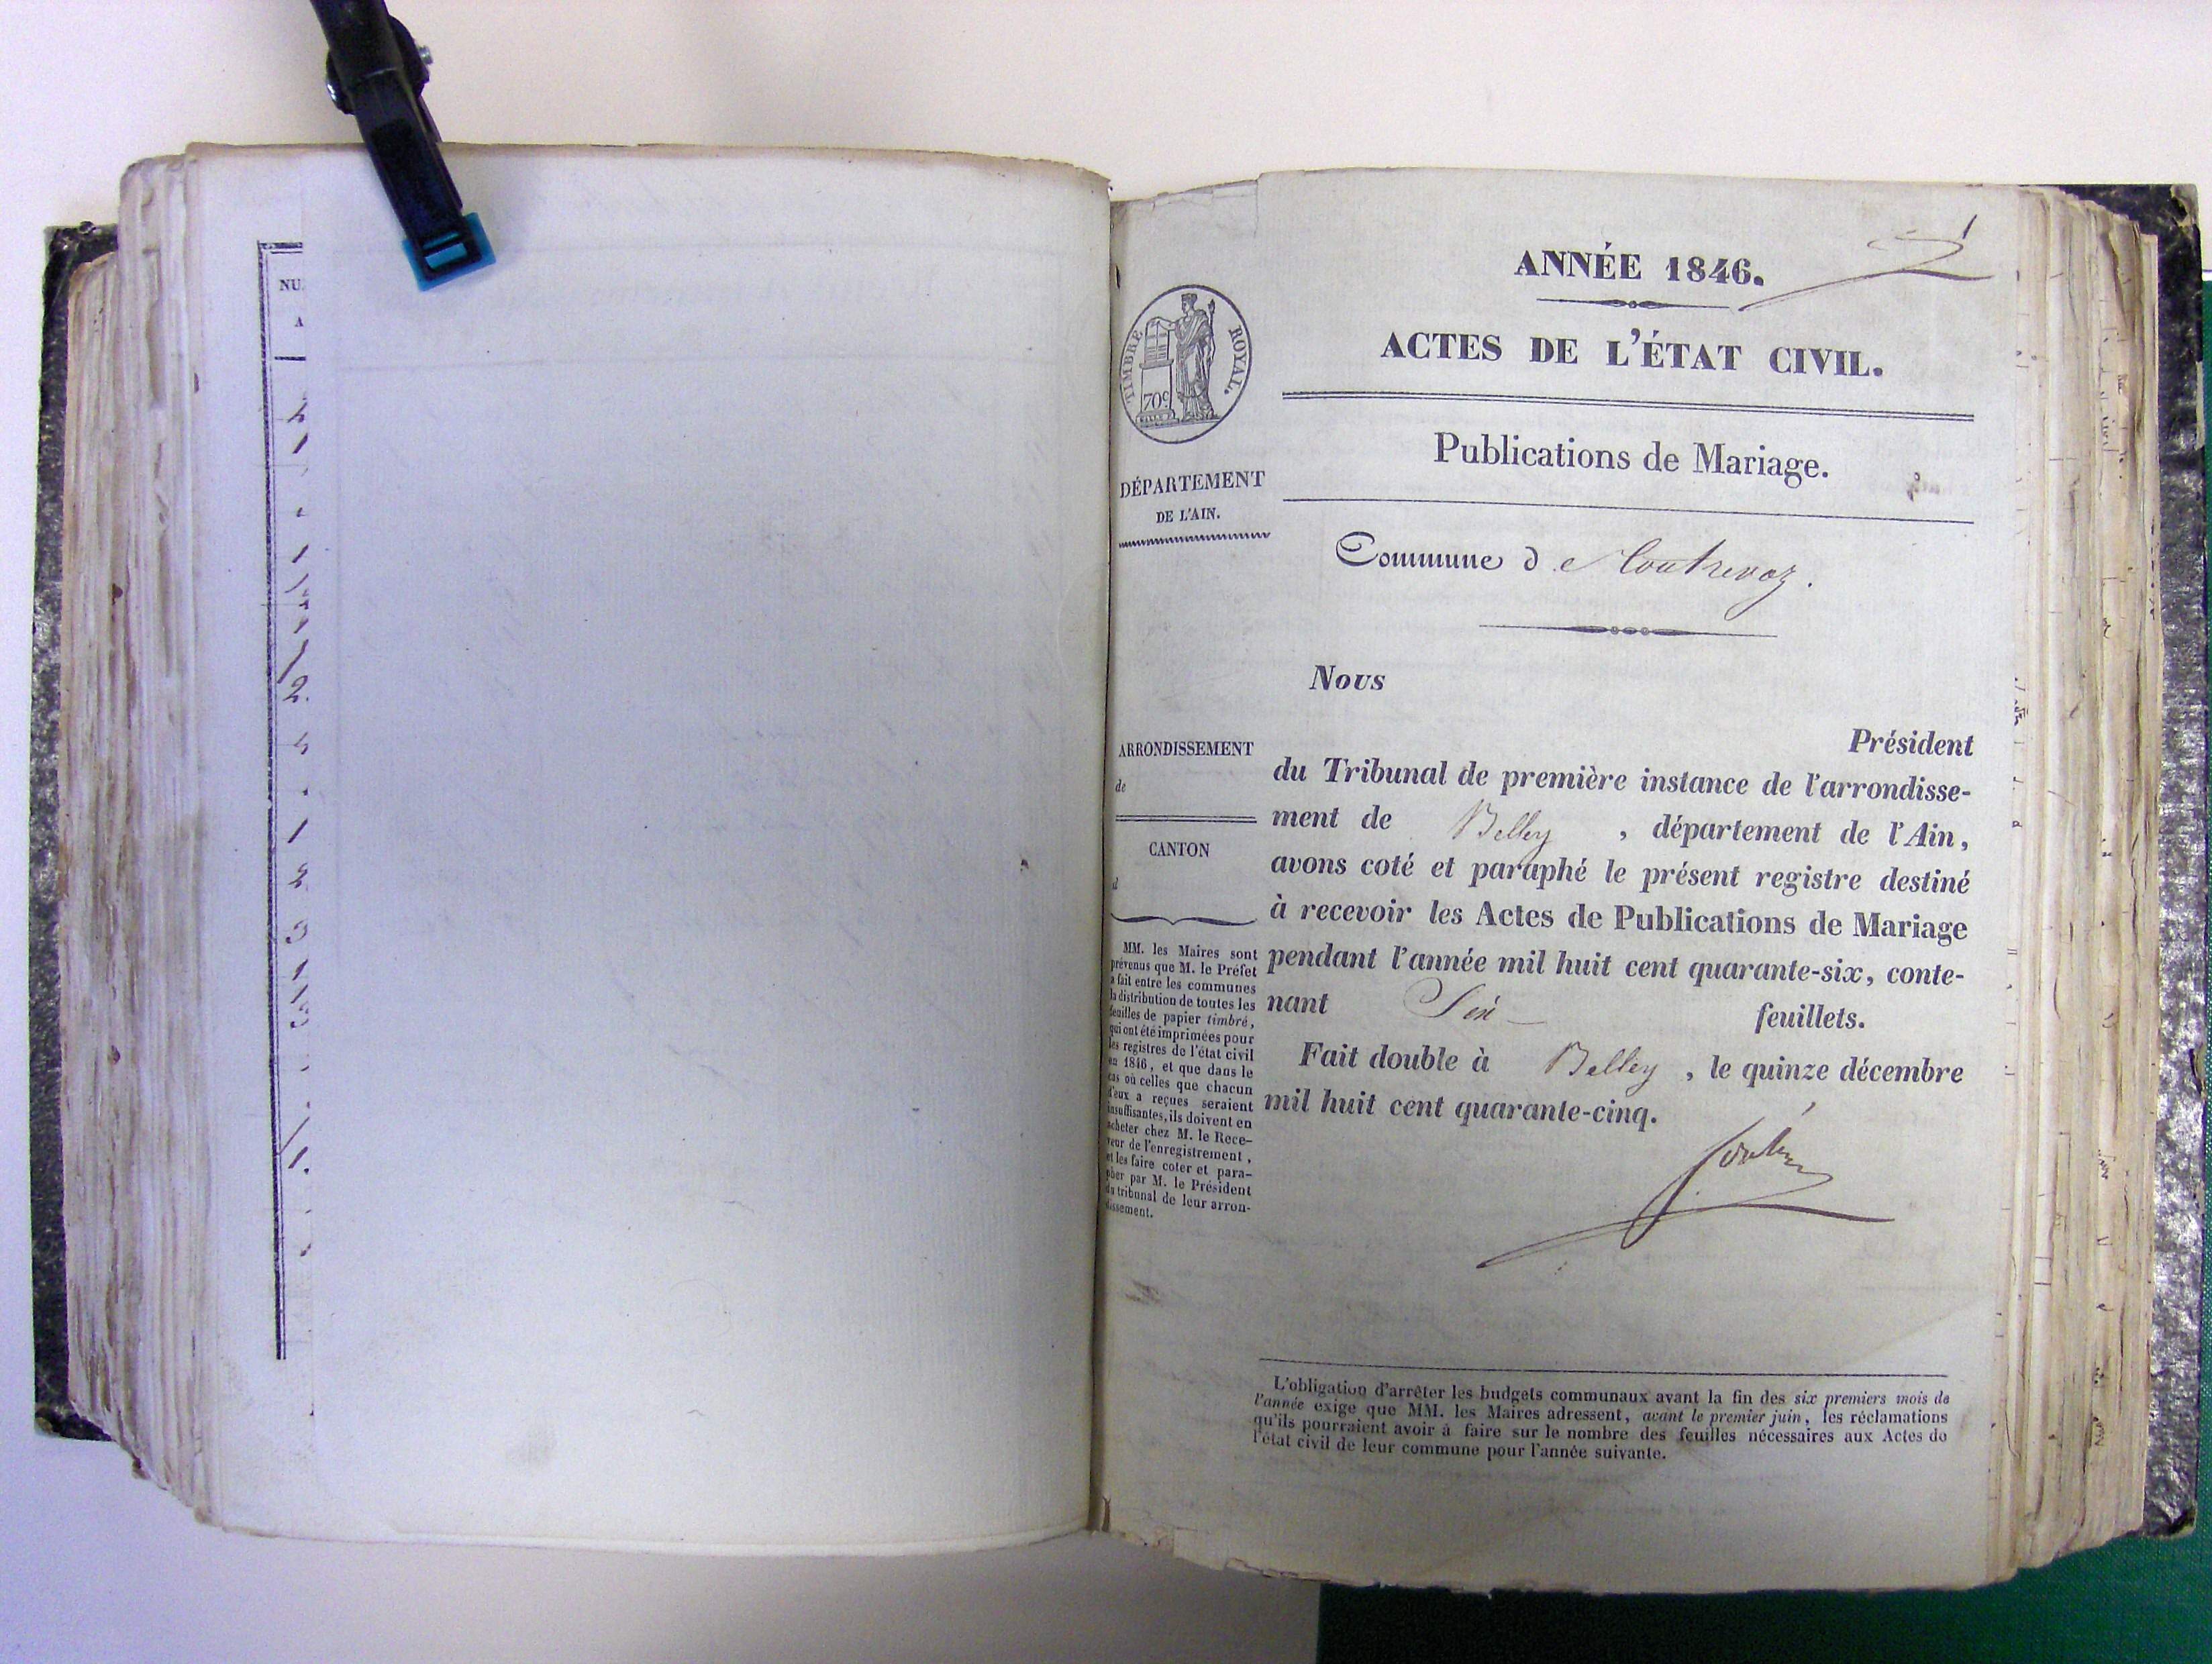 NU
A
1
ANNÉE 1846.
ACTES DE L'ÉTAT CIVIL.
TIMBRE ROYAL.
70c
Publications de Mariage.
DÉPARTEMENT
DE L'AIN.
Commune de Contrevoz.
Nous
Président
du Tribunal de première instance de l'arrondisse-
ment de Belley , département de l'Ain,
avons coté et paraphé le présent registre destiné
à recevoir les Actes de Publications de Mariage
pendant l'année mil huit cent quarante-six, conte-
nant Six feuillets.
Fait double à Belley , le quinze décembre
mil huit cent quarante-cinq.
ARRONDISSEMENT
de
CANTON
d
MM. les Maires sont
prévenus que M. le Préfet
a fait entre les communes
la distribution de toutes les
feuilles de papier timbré,
qui ont été imprimées pour
les registres de l'état civil
en 1846, et que dans le
cas où celles que chacun
d'eux a reçues seraient
insuffisantes, ils doivent en
acheter chez M. le Rece-
veur de l'enregistrement,
et les faire coter et para-
pher par M. le Président
du tribunal de leur arron-
dissement.
L'obligation d'arrêter les budgets communaux avant la fin des six premiers mois de
l'année exige que MM. les Maires adressent, avant le premier juin, les réclamations
qu'ils pourraient avoir à faire sur le nombre des feuilles nécessaires aux Actes de
l'état civil de leur commune pour l'année suivante.